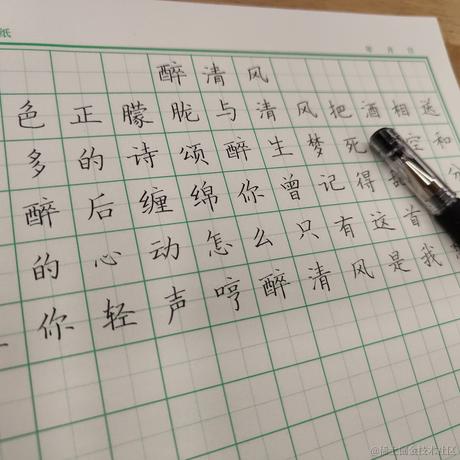 纸
年 月 日
醉清风
色正朦胧与清风把酒相送
多的诗颂醉生梦死 空和
醉后缠绵你曾记得 分
的心动怎么只有这首
你轻声哼醉清风是我
@稀土掘金技术社区